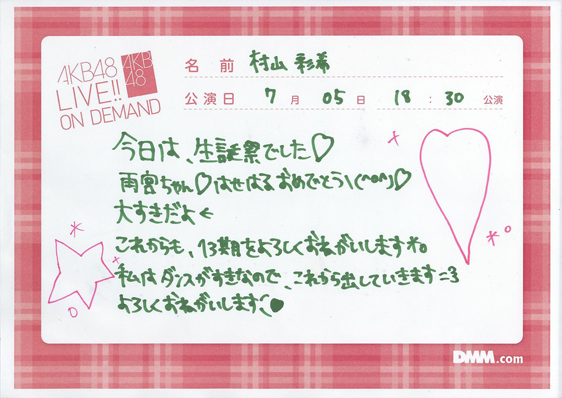 AKB48
LIVE!!
ON DEMAND
AKB
48
名前 村山 彩希
公演日 7月 05日 18:30 公演
今日は、生誕祭でした♡
雨宮ちゃん♡はせはるおめでとう\(^o^)♡
大すきだよ←
これからも、13期をよろしくおねがいします*。
私はダンスがすきなので、これから出していきます=3
よろしくおねがいします
DMM.com